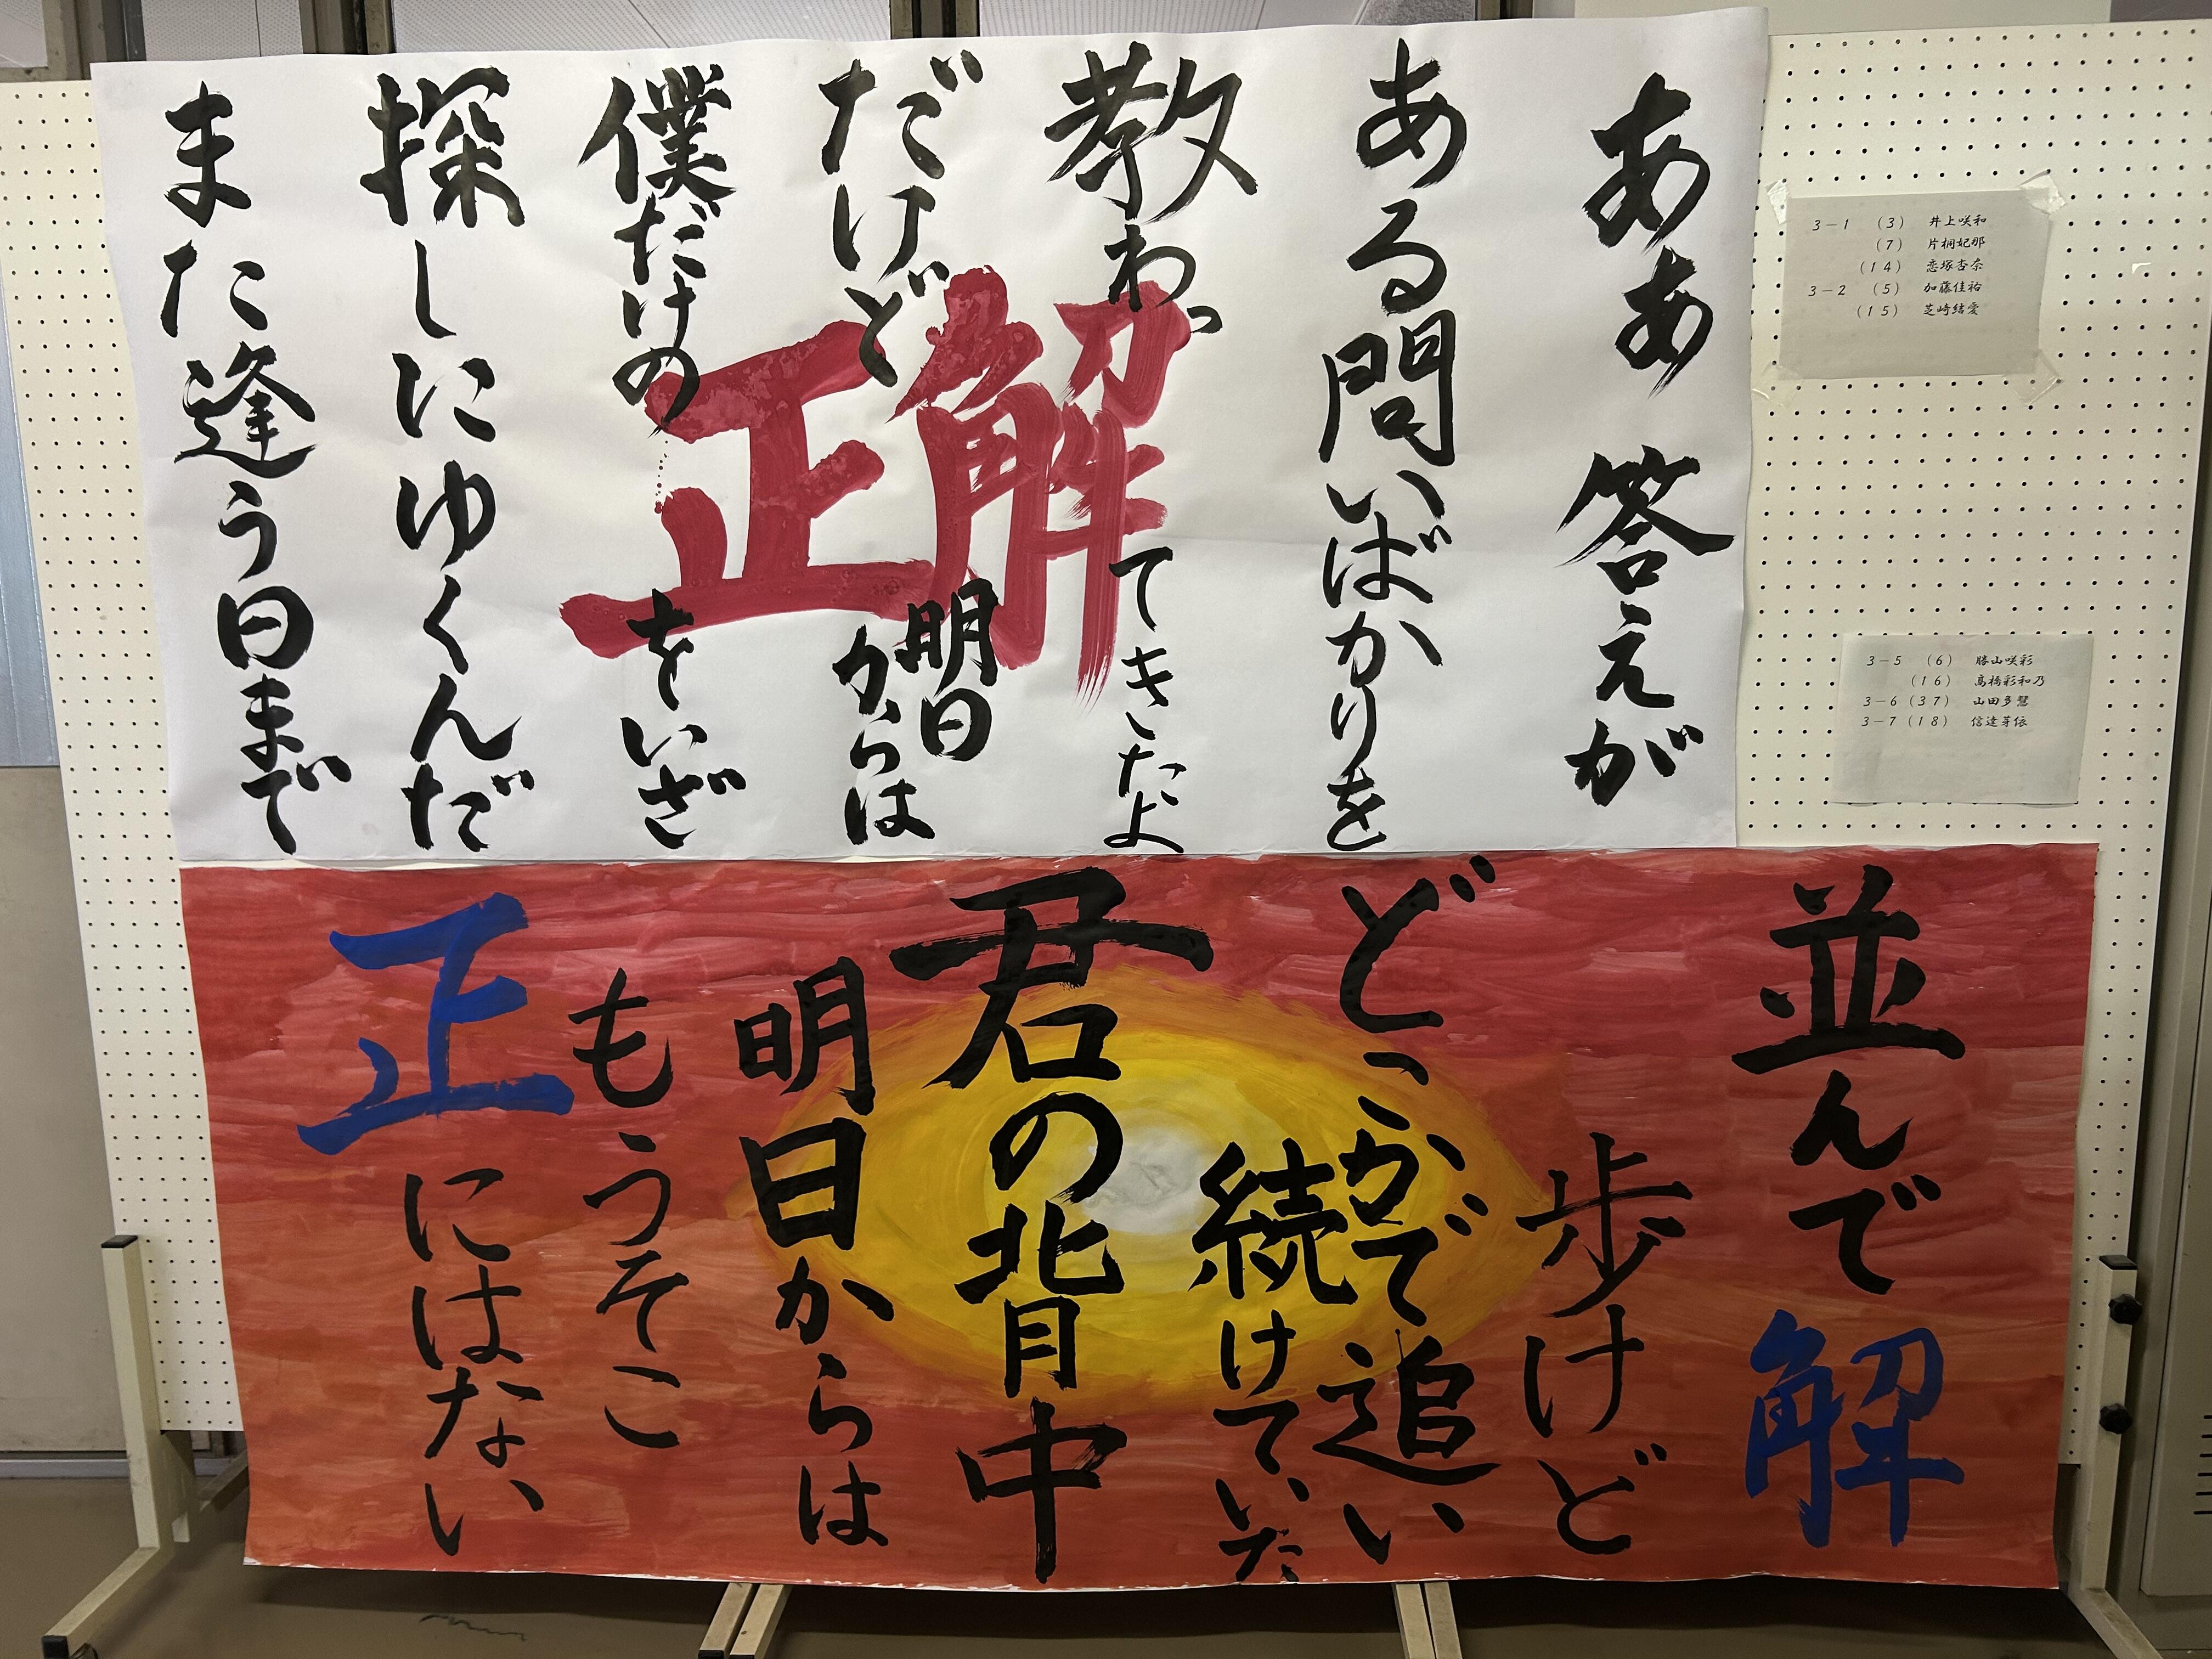 ああ 答えが
ある問いばかりを
教わってきたよ
だけど明日からは
僕だけの正解をいざ
探しにゆくんだ
また逢う日まで
並んで
歩けど
どっかで追い
続けていた
君の背中
明日からは
もうそこ
にはない
正解
3-1 (3) 井上咲和
(7) 片桐妃那
(14) 恋塚杏奈
3-2 (5) 加藤佳祐
(15) 芝崎結愛
3-5 (6) 勝山咲彩
(16) 高橋彩和乃
3-6 (37) 山田多慧
3-7 (18) 信達芽依